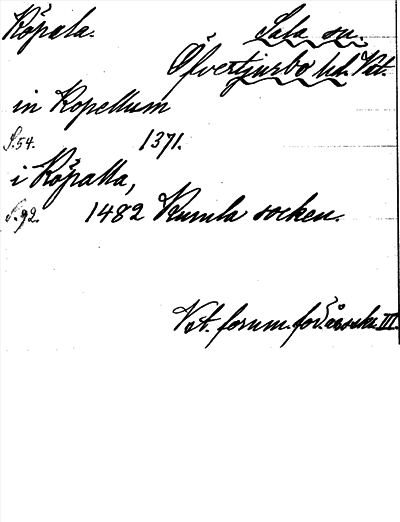 Köpala. Sala sn.
Öfvertjurbo hd. Vst.
in Kopellum
S. 54. 1371.
i Köpalla,
S. 92. 1482 Kumla socken.
Vst. fornm.för. årsskr. III.